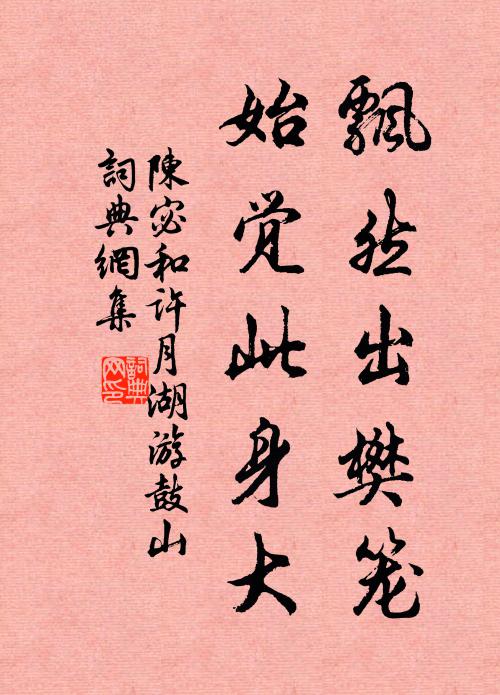 飄然出樊笼
始觉此身大
陳宓和许月湖游鼓山
詞典網集
詞典网印